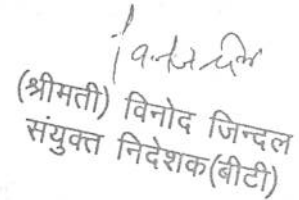 (श्रीमती) विनोद जिन्दल
संयुक्त निदेशक(बीटी)